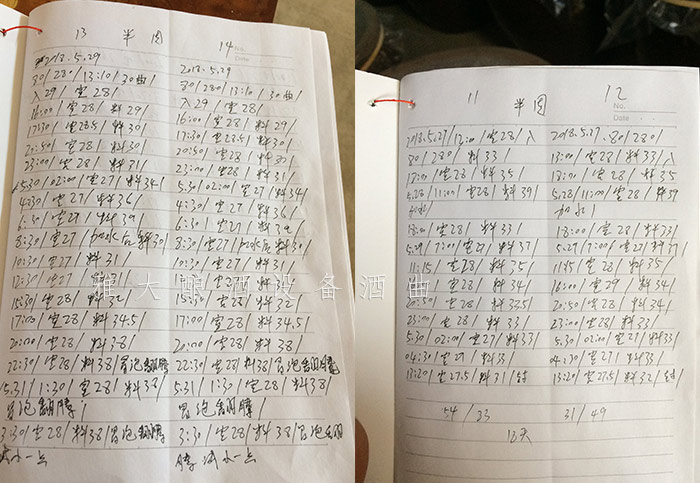 13 半周 14
No.
Date
2018.5.29
30/28/13:10/30曲/
入29/室28/
16:00/室28/料29/
17:30/室28.5/料30/
20:50/室28/料30/
23:00/室28/料31/
5.30/02:00/室27/料34/
4:30/室27/料36/
6:30/室27/料39/
8:30/室27/加水后料30/
10:30/室27/料31/
12:30/室27/料31/
15:30/室28/料32/
17:00/室28/料34.5/
20:00/室28/料38/
22:30/室28/料38/冒泡翻腾
5.31/1:30/室28/料38/
冒泡翻腾/
3:30/室28/料38/冒泡翻腾
减小一点
2018.5.29
30/280/13:10/30曲/
入29/室28/
16:00/室28/料29/
17:30/室28.5/料30/
20:50/室28/料30/
23:00/室28/料31/
5.30/02:00/室27/料34/
4:30/室27/料36/
6:30/室27/料39/
8:30/室27/加水后料30/
10:30/室27/料31/
15:30/室28/料32/
17:00/室28/料34.5/
20:00/室28/料38/
22:30/室28/料38/冒泡翻腾
5.31/1:30/室28/料38/
冒泡翻腾/
3:30/室28/料38/冒泡翻
腾减小一点
11 半周 12
No.
Date
2018.5.27/12:00/室28/入
30/280/料33/
18:00/室28/料35/
5.28/11:00/室28/料39/
加水/
18:00/室28/料33/
5.29/7:00/室27/料37/
11:15/室28/料35/
料34/
20:50/室28/料33.5/
23:00/室28/料33/
5.30/02:00/室27/料33/
04:30/室27/料33/
13:20/室27.5/料31/封
54/33
2018.5.27.30/280/
13:00/室28/料33/入
18:00/室28/料35/
5.28/11:00/室28/料39
加水/
18:00/室28/料33/
5.29/7:00/室27/料37/
11:15/室28/料35/
16:00/室29/料34/
20:50/室28/料34/
23:00/室28/料33/
5.30/02:00/室27/料33/
04:30/室27/料33/
13:20/室27.5/料32/封/
31/49
12天
雅大酿酒设备酒曲